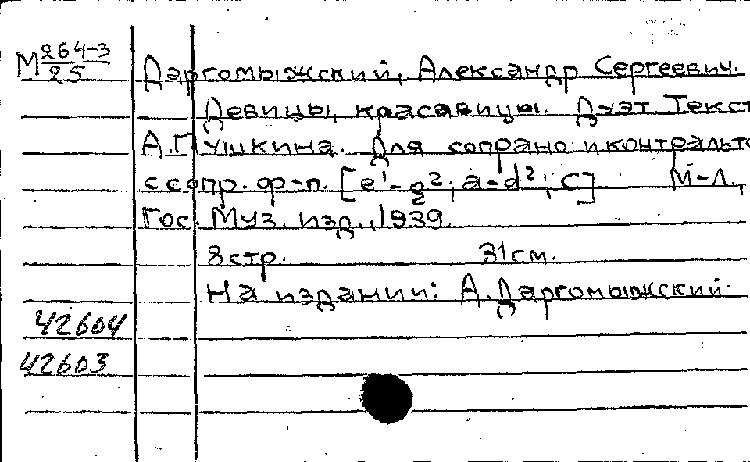 М 264-3
25
Даргомыжский, Александр Сергеевич.
Девицы, красавицы. Дуэт Текст
А.Пушкина. Для сопрано и контральто
с сопр. ф-п. [e¹-g²; a-d²; C] М-Л.,
Гос. Муз. изд., 1939.
8 стр. 31 см.
На издании: А. Даргомыжский.
42604
42603